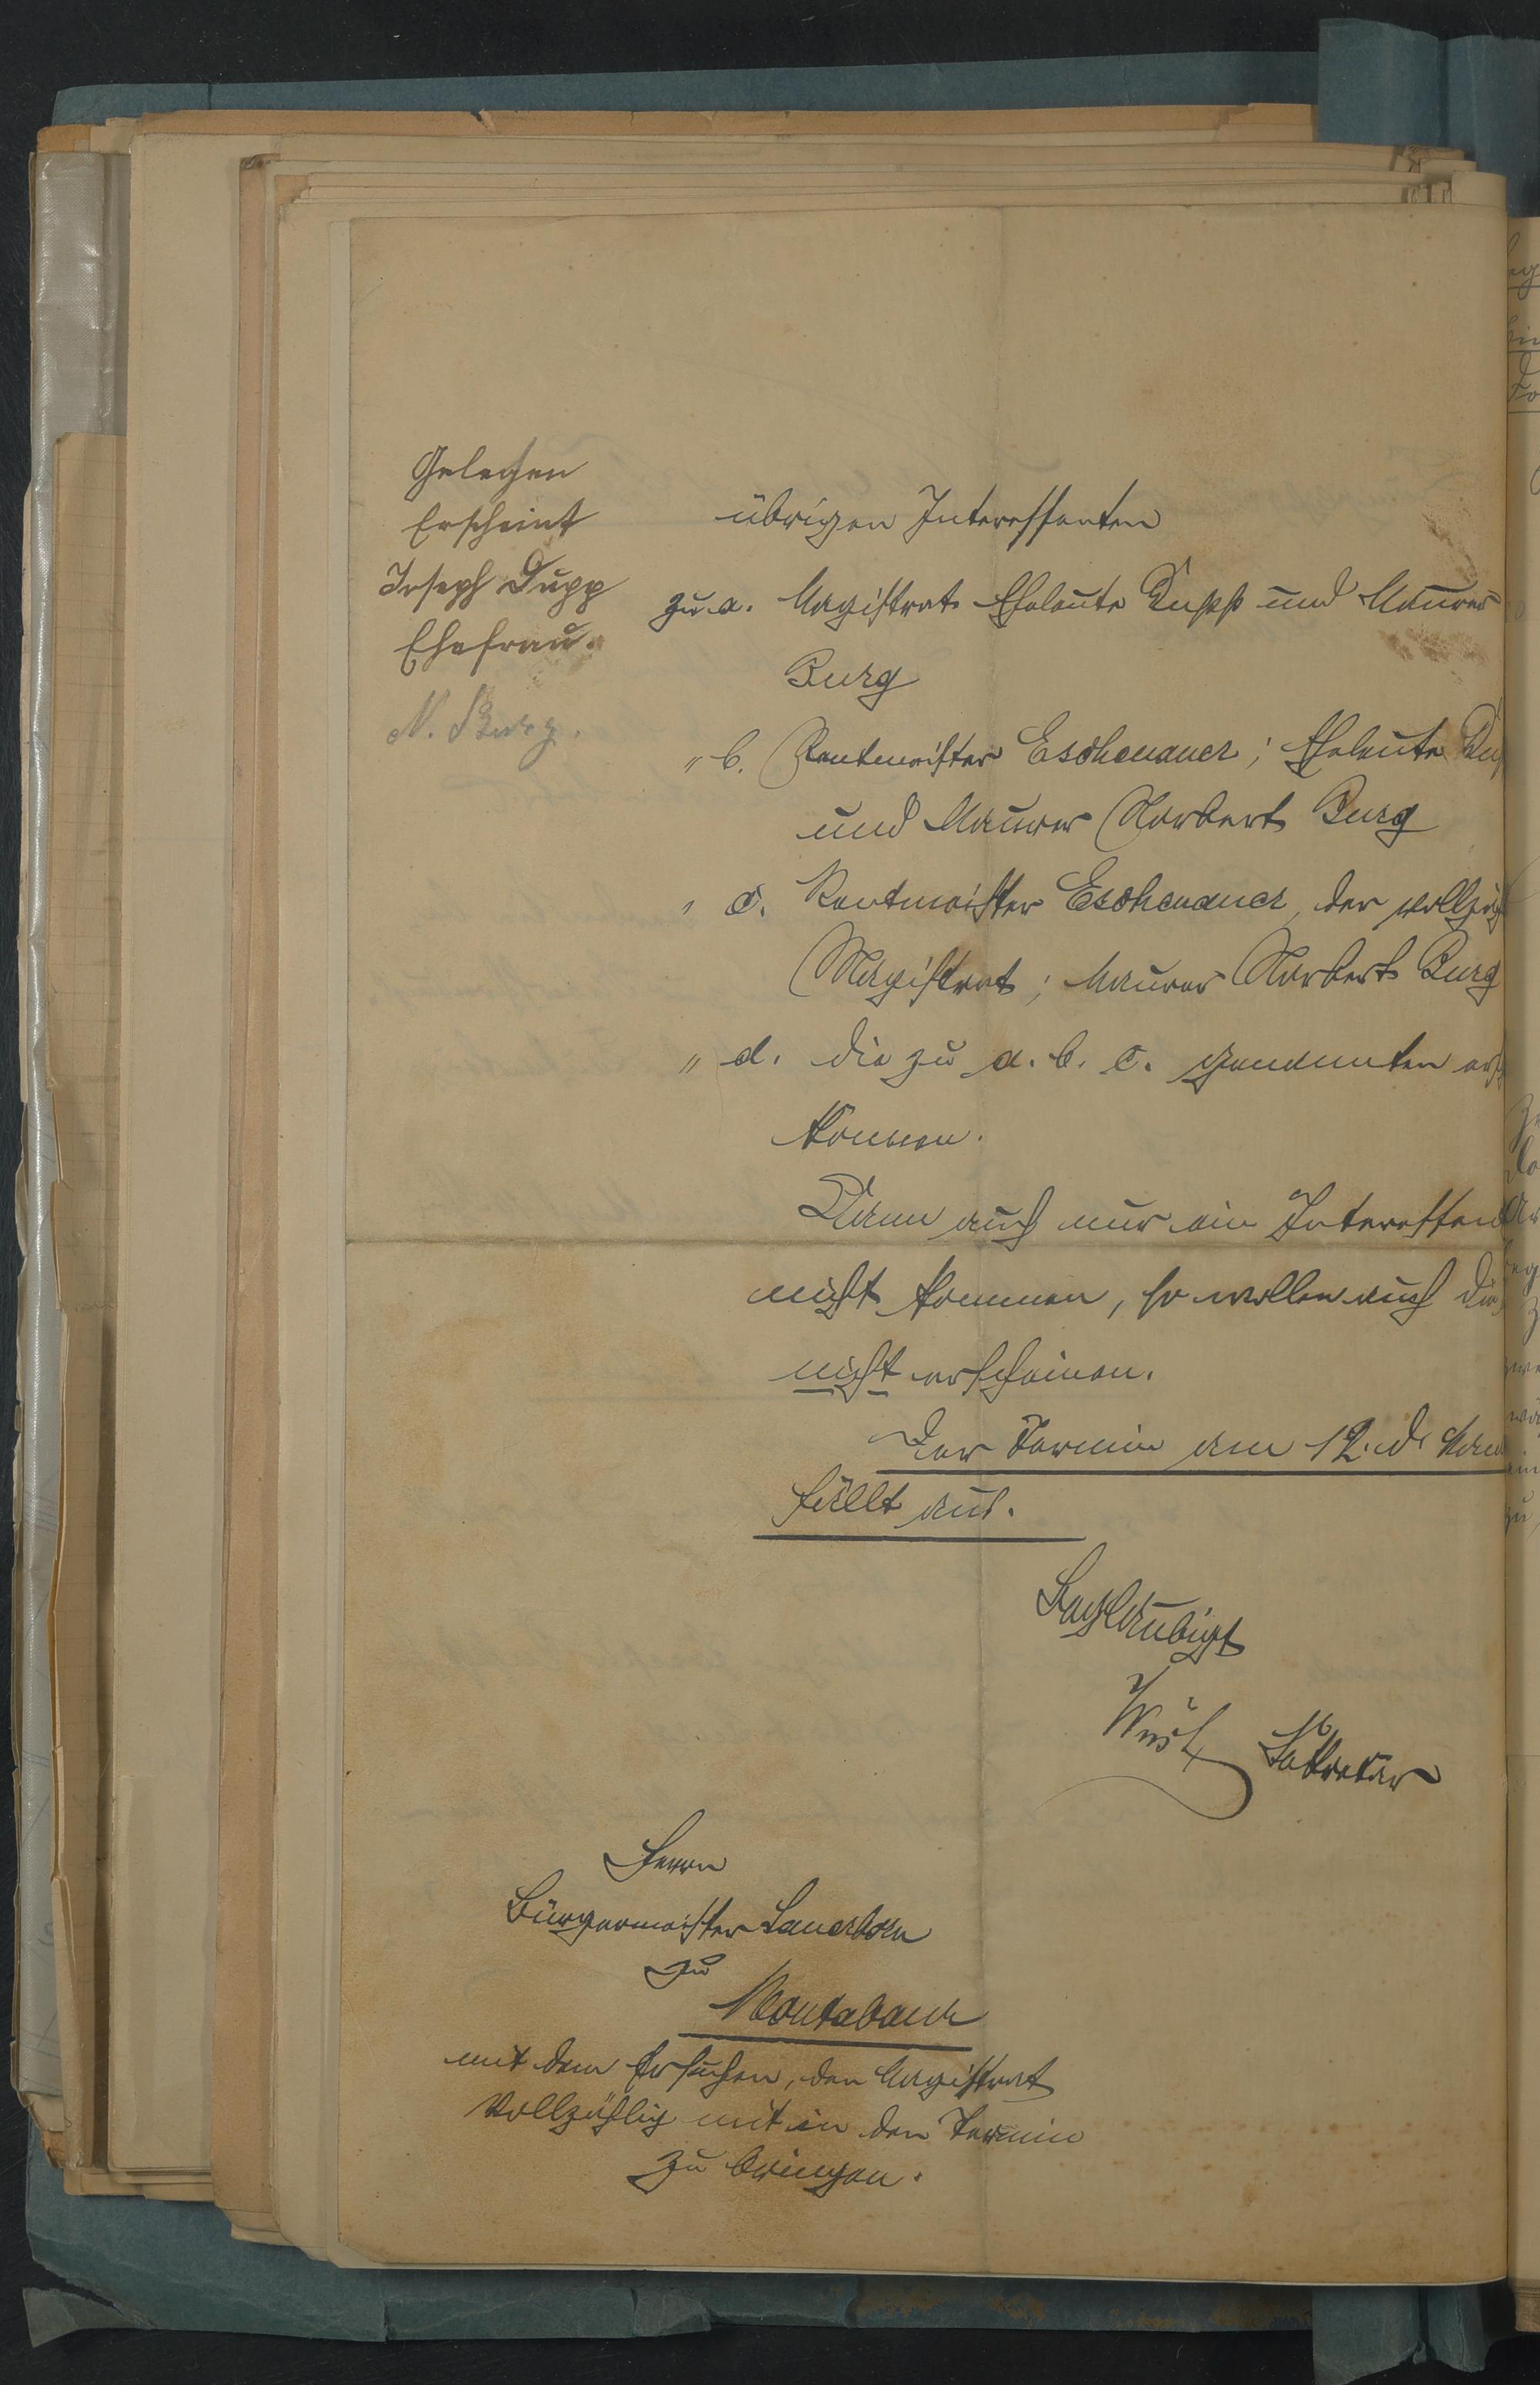 Gelesen
Erscheint
Joseph Dupp
Ehefrau.
N. Burg.
übrigen Interessenten
zu a. Magistrat Eheleute Dupp und Maurer
Burg
" b. Rentmeister Eschenauer; Eheleute
und Maurer Norbert Burg
" c. Rentmeister Eschenauer, der vollzäh
Magistrat; Maurer Norbert Burg
" d. die zu a. b. c. genannten
können.
Kann auch nur ein Interessen
nicht kommen, so wollen auch die
nicht erscheinen.
Der Termin am 12. d.
fällt aus.
Beglaubigt
Wüst Sekretär
Herrn
Bürgermeister Sauerborn
zu
Montabaur
mit dem Ersuchen, den Magistrat
vollzählig mit in den Termin
zu bringen.